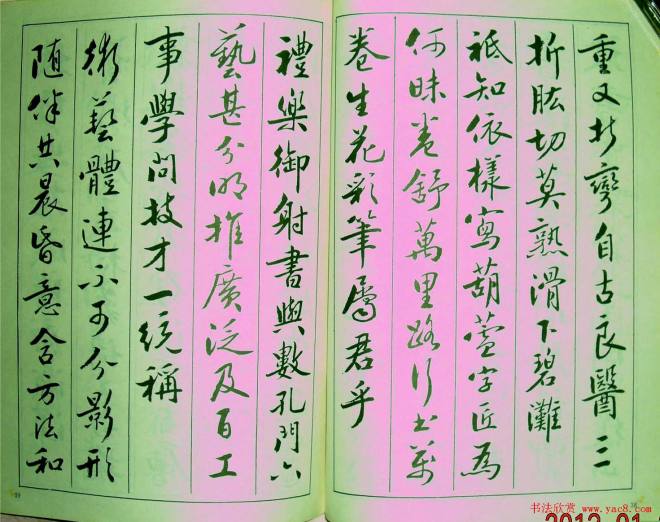 重又折彎自古良醫三
折肱切莫熟滑下碧灘
祇知依樣寫葫蘆字匠為
何昧卷舒萬里路行书萬
卷生花彩筆屬君乎
禮樂御射書與數孔門六
藝甚分明推廣泛及百工
事學問技才一統稱
術藝體連不可分影形
随伴共晨昏意含方法和
书法欣赏 www.yac8.com